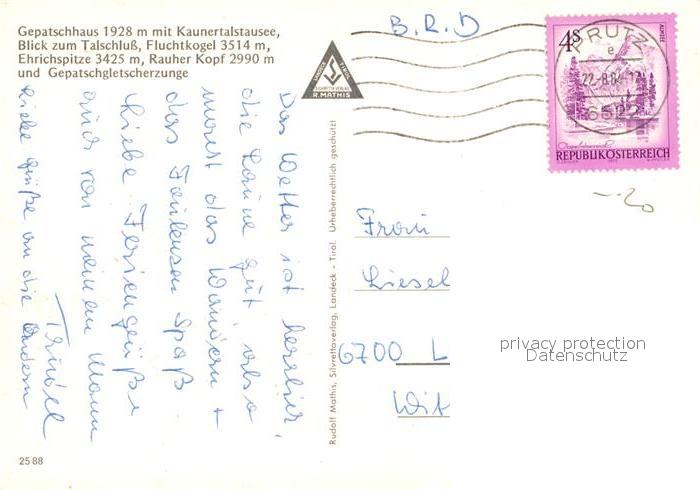 Gepatschhaus 1928 m mit Kaunertalstausee,
Blick zum Talschluß, Fluchtkogel 3514 m,
Ehrichspitze 3425 m, Rauher Kopf 2990 m
und Gepatschgletscherzunge
B.R.D
LANDECK TIROL
SILVRETTA VERLAG
R. MATHIS
PRUTZ
e
22.-8.80-17
6522
4S
ALMSEE
REPUBLIK ÖSTERREICH
Das Wetter ist herrlich,
die Laune gut also
macht das Wandern +
das Faulensen Spaß.
Liebe Feriengrüße
auch von meinem Mann
Trudel
Liebe Grüße an die Andern
Rudolf Mathis, Silvrettaverlag, Landeck - Tirol. Urheberrechtlich geschützt
Frau
Liesel
6700 L
Wit
privacy protection
Datenschutz
25 88